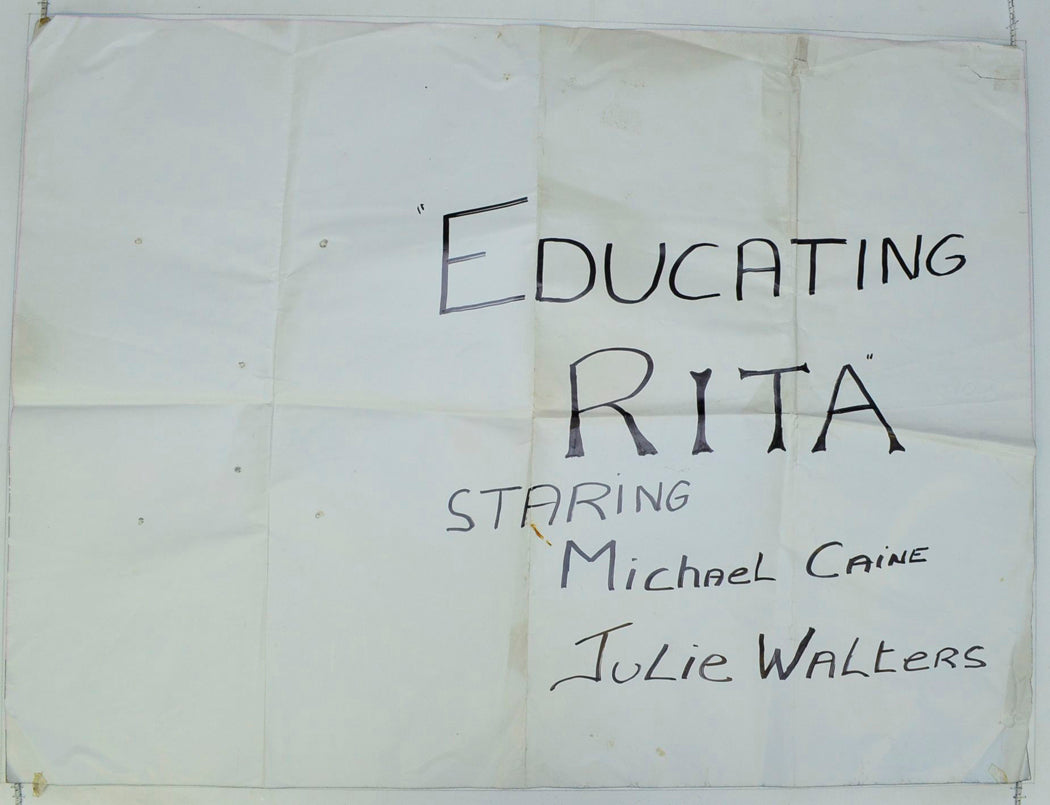 "EDUCATING
RITA"
STARING
MICHAEL CAINE
JULIE WALTERS